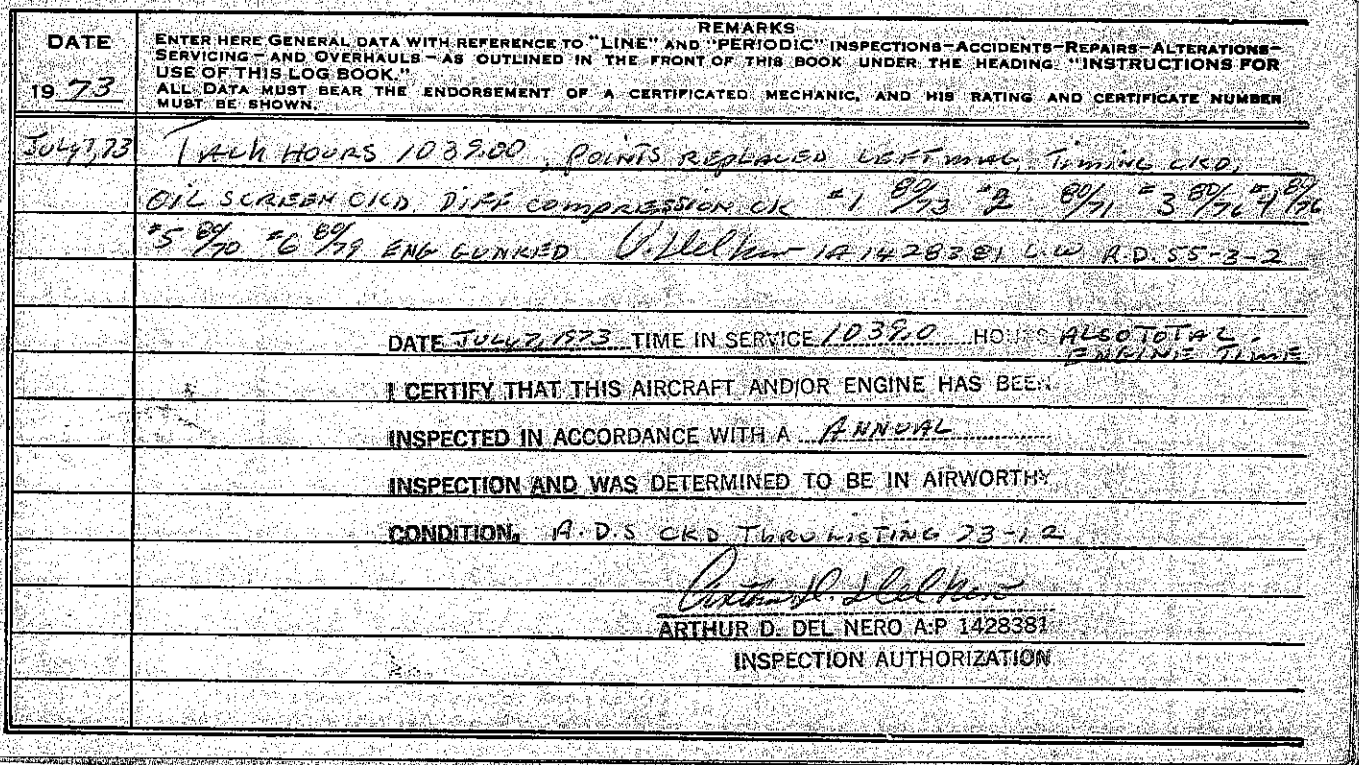 REMARKS
DATE
ENTER HERE GENERAL DATA WITH REFERENCE TO "LINE" AND "PERIODIC" INSPECTIONS-ACCIDENTS-REPAIRS-ALTERATIONS-
SERVICING-AND OVERHAULS-AS OUTLINED IN THE FRONT OF THIS BOOK UNDER THE HEADING. "INSTRUCTIONS FOR
USE OF THIS LOG BOOK."
1973
ALL DATA MUST BEAR THE ENDORSEMENT OF A CERTIFICATED MECHANIC, AND HIS RATING AND CERTIFICATE NUMBER
MUST BE SHOWN.
July 7, 73 TACH HOURS 1039.00, POINTS REPLACED LEFT MAG, TIMING CKD,
OIL SCREEN CKD. DIFF COMPRESSION CK #1 80/73 #2 80/71 #3 80/76 #4 80/76
#5 80/70 #6 80/79 ENG GUNKED IA 1428381 A.D. 55-3-2
DATE JULY 7, 1973 TIME IN SERVICE 1039.0 HOURS ALSO TOTAL
ENGINE TIME
I CERTIFY THAT THIS AIRCRAFT AND/OR ENGINE HAS BEEN
INSPECTED IN ACCORDANCE WITH A ANNUAL
INSPECTION AND WAS DETERMINED TO BE IN AIRWORTHY
CONDITION. A.D.S CKD THRU LISTING 73-12
ARTHUR D. DEL NERO A:P 1428381
INSPECTION AUTHORIZATION